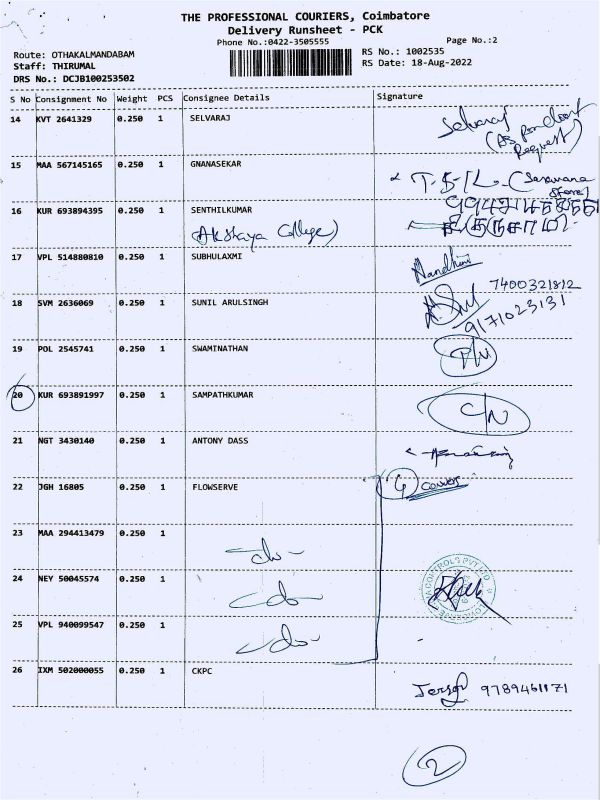 THE PROFESSIONAL COURIERS, Coimbatore
Delivery Runsheet - PCK
Phone No.:0422-3505555
Page No.:2
Route: OTHAKALMANDABAM
RS No.: 1002535
Staff: THIRUMAL
RS Date: 18-Aug-2022
DRS No.: DCJB100253502
S No Consignment No Weight PCS Consignee Details Signature
14 KVT 2641329 0.250 1 SELVARAJ Selvaraj
Request)
15 MAA 567145165 0.250 1 GNANASEKAR T.S.K. (Saravana
Store)
16 KUR 693894395 0.250 1 SENTHILKUMAR
(Akshaya College)
17 VPL 514880810 0.250 1 SUBHULAXMI Nandhini
7400321812
18 SVM 2636069 0.250 1 SUNIL ARULSINGH
9171023131
19 POL 2545741 0.250 1 SWAMINATHAN
20 KUR 693891997 0.250 1 SAMPATHKUMAR C/N
21 NGT 3430140 0.250 1 ANTONY DASS
22 JGH 16805 0.250 1 FLOWSERVE 4 covers
23 MAA 294413479 0.250 1 -do-
24 NEY 50045574 0.250 1 -do-
25 VPL 940099547 0.250 1 -do-
26 IXM 502000055 0.250 1 CKPC 9789461171
2